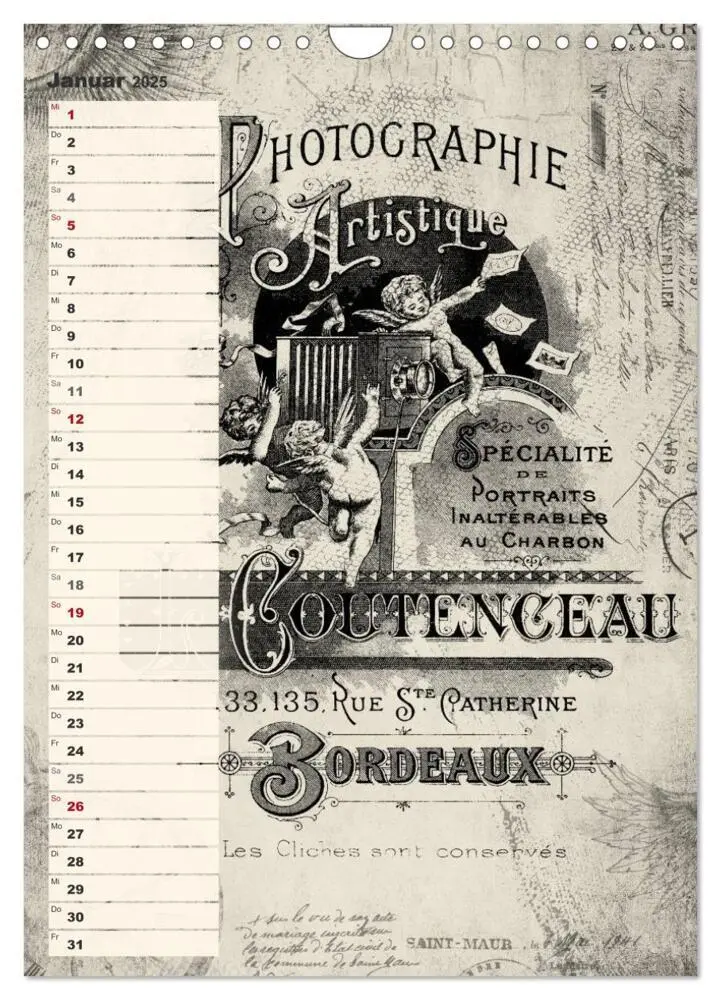 A. GR
Januar 2025
Mi 1
Do 2
Fr 3
Sa 4
So 5
Mo 6
Di 7
Mi 8
Do 9
Fr 10
Sa 11
So 12
Mo 13
Di 14
Mi 15
Do 16
Fr 17
Sa 18
So 19
Mo 20
Di 21
Mi 22
Do 23
Fr 24
Sa 25
So 26
Mo 27
Di 28
Mi 29
Do 30
Fr 31
N°
PHOTOGRAPHIE
Artistique
SPÉCIALITÉ
DE
PORTRAITS
INALTÉRABLES
AU CHARBON
COUTENCEAU
33,135, RUE STE CATHERINE
BORDEAUX
Les Cliches sont conservés
PARIS
SAINT-MAUR